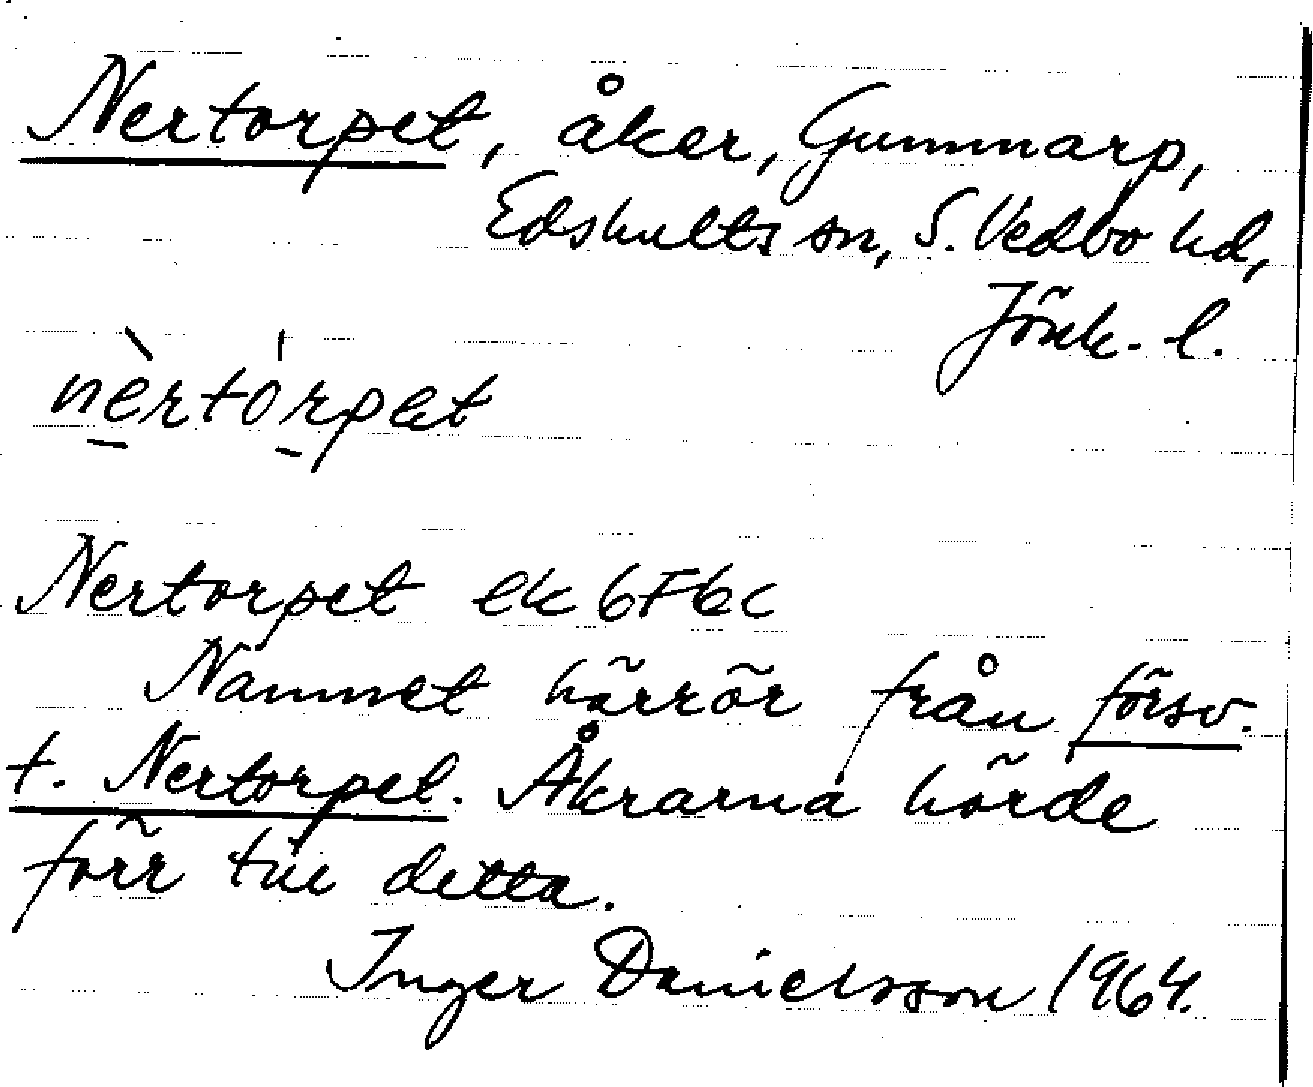 Nertorpet, åker, Gummarp,
Edshults sn, S. Vedbo hd,
Jönk. l.
nè̱rtó̱rpet
Nertorpet ek 6F6c
Namnet härrör från försv.
t. Nertorpet. Åkrarna hörde
förr till detta.
Inger Danielsson 1964.